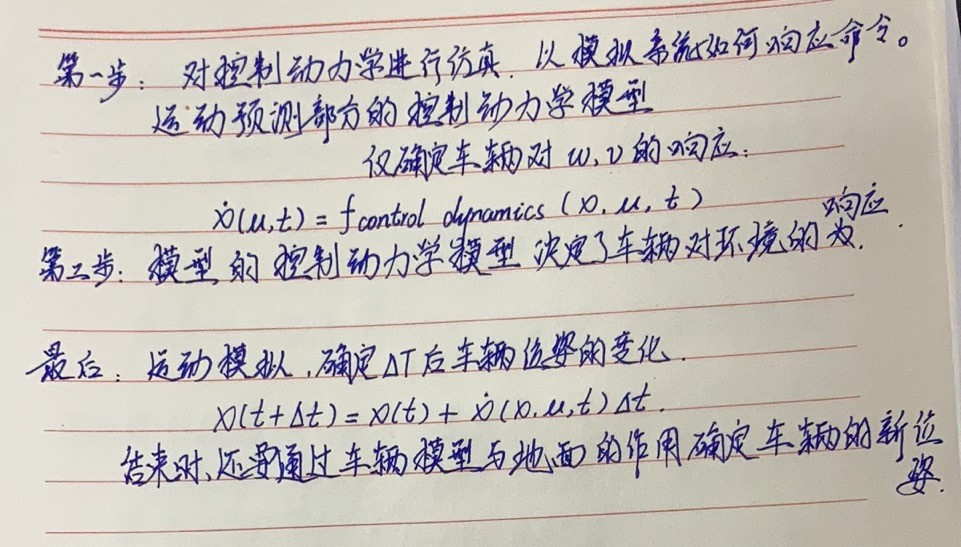 第一步: 对控制动力学进行仿真. 以模拟系统如何响应命令。
运动预测部分的控制动力学模型
仅确定车辆对 w, v 的响应:
ẋ(u,t) = f control dynamics (x, u, t)
响应
第二步: 模型的控制动力学模型 决定了车辆对环境的为.
最后: 运动模拟, 确定ΔT后车辆位姿的变化.
x(t+Δt) = x(t) + ẋ(x.u,t) Δt.
结束时, 还要通过车辆模型与地面的作用确定车辆的新位
姿.